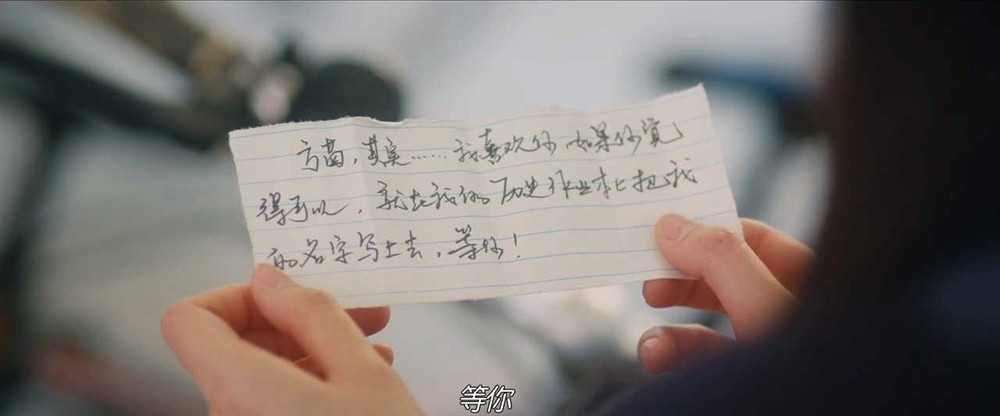 方茴，其实……我喜欢你 如果你觉
得可以，就在我的历史作业本上把我
的名字写上去，等你！
等你